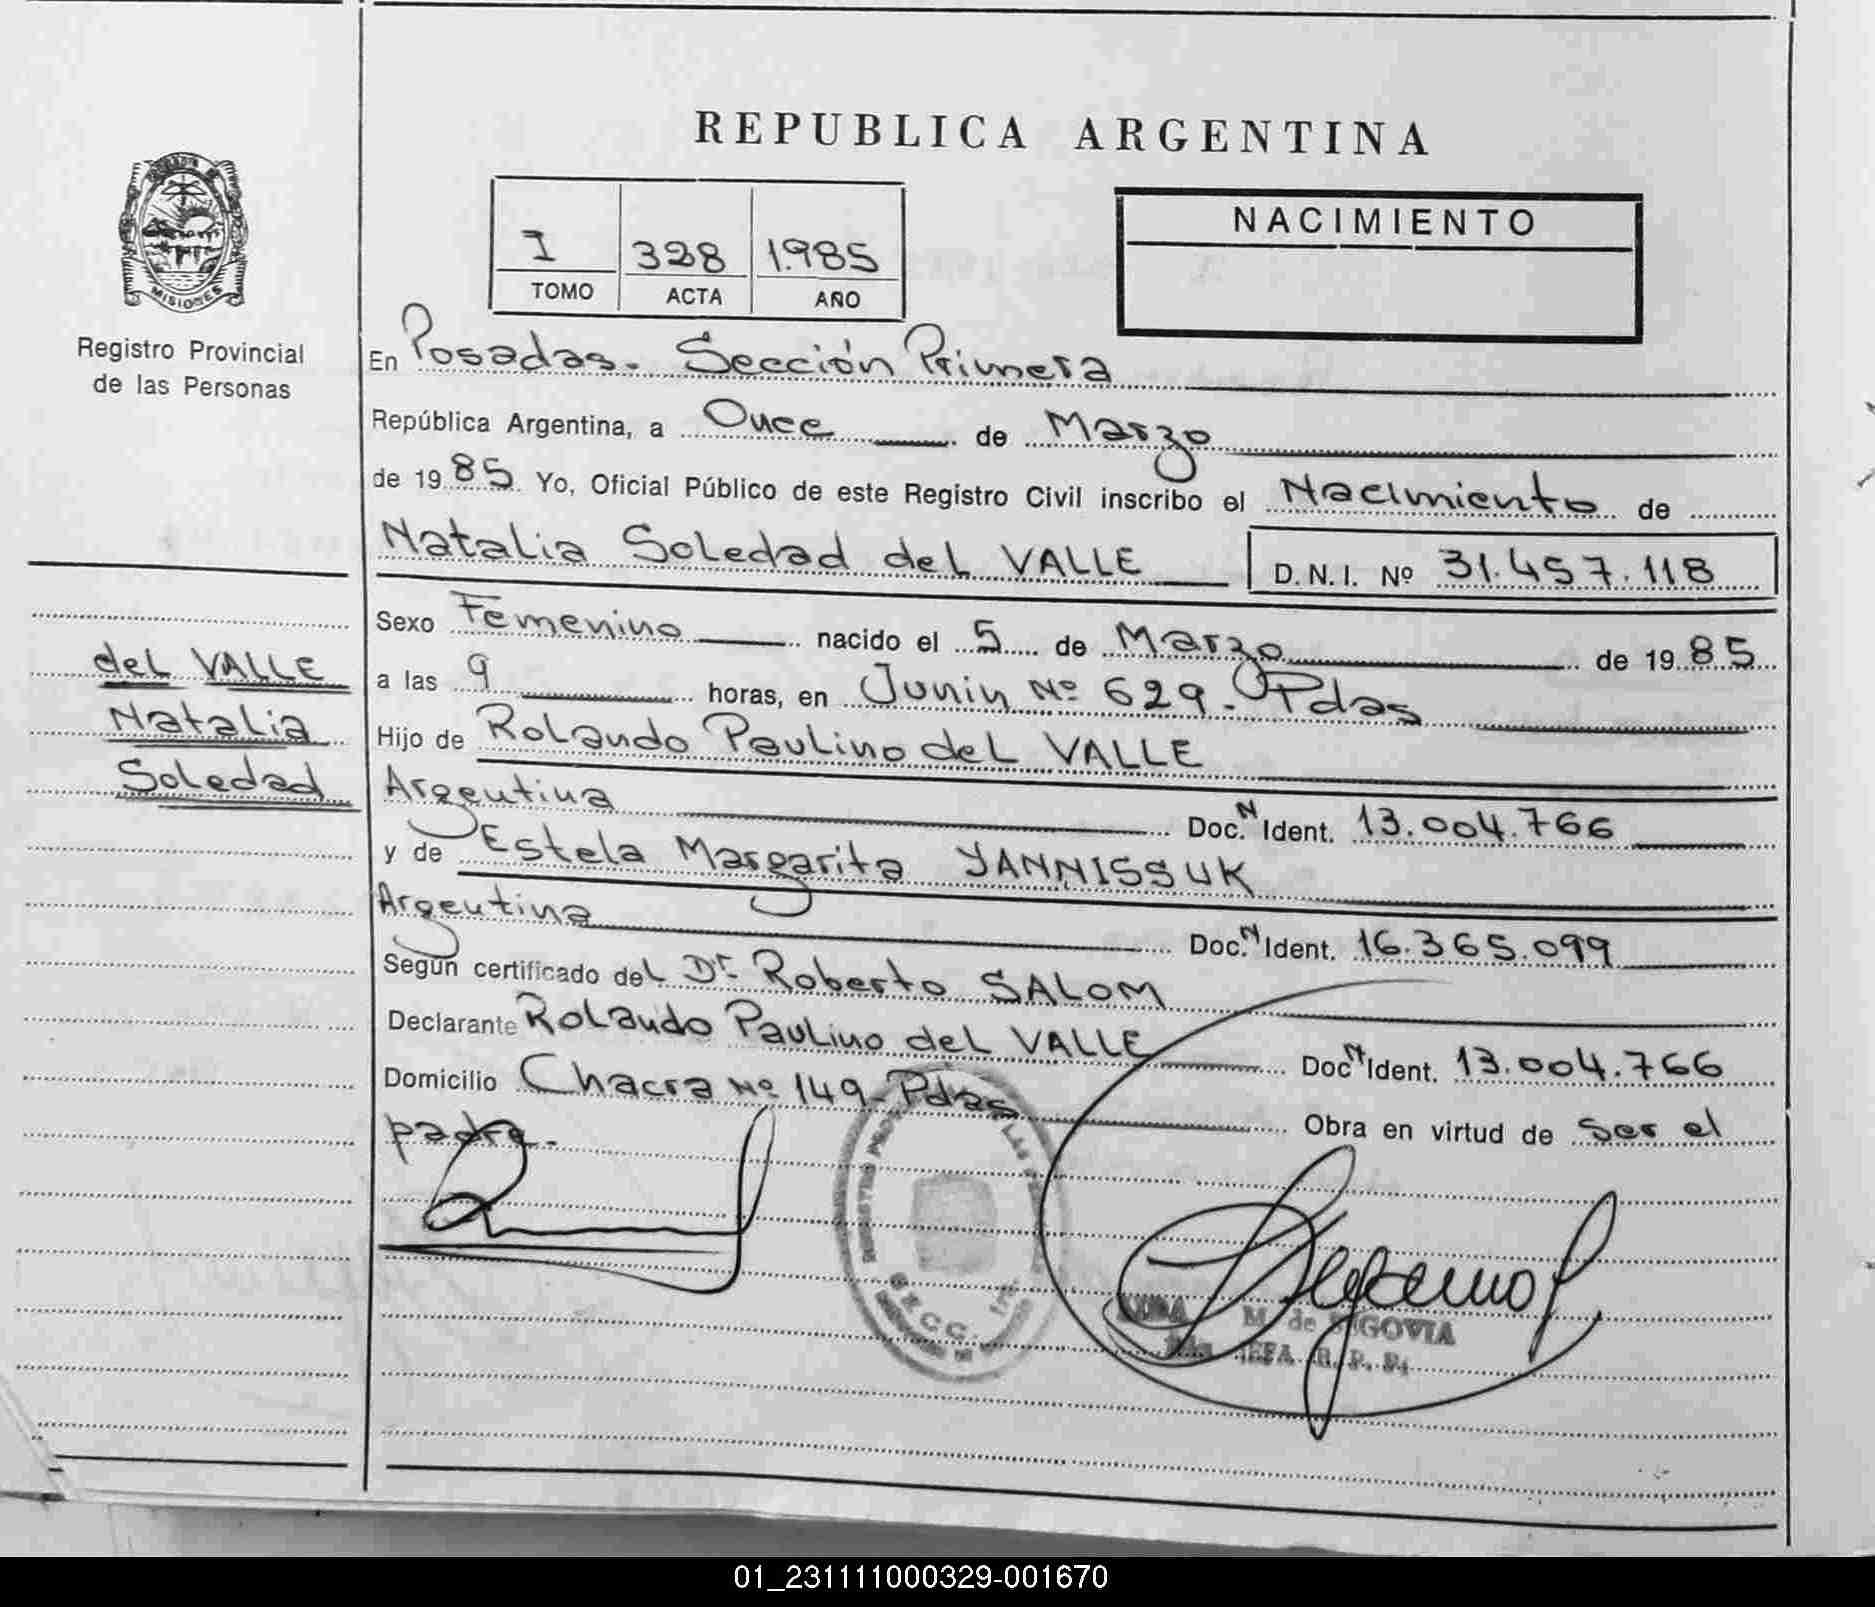 REPUBLICA ARGENTINA
NACIMIENTO
I 328 1.985
TOMO ACTA AÑO
MISIONES
Registro Provincial
de las Personas
En Posadas. Sección Primera
República Argentina, a Once de Marzo
de 1985 Yo, Oficial Público de este Registro Civil inscribo el Nacimiento de
Natalia Soledad del VALLE D.N.I. Nº 31.457.118
Sexo Femenino nacido el 5 de Marzo de 1985
del VALLE
Natalia
Soledad
a las 9 horas, en Junin Nº 629. Pdas
Hijo de Rolando Paulino del VALLE
Argentina Doc. N Ident. 13.004.766
y de Estela Margarita YANNISSUK
Argentina Doc. N Ident. 16.365.099
Según certificado del Dr. Roberto SALOM
Declarante Rolando Paulino del VALLE Doc N Ident. 13.004.766
Domicilio Chacra Nº 149_ Pdas Obra en virtud de ser el
padre.
M. de SEGOVIA
JEFA R. P. P.
01_231111000329-001670